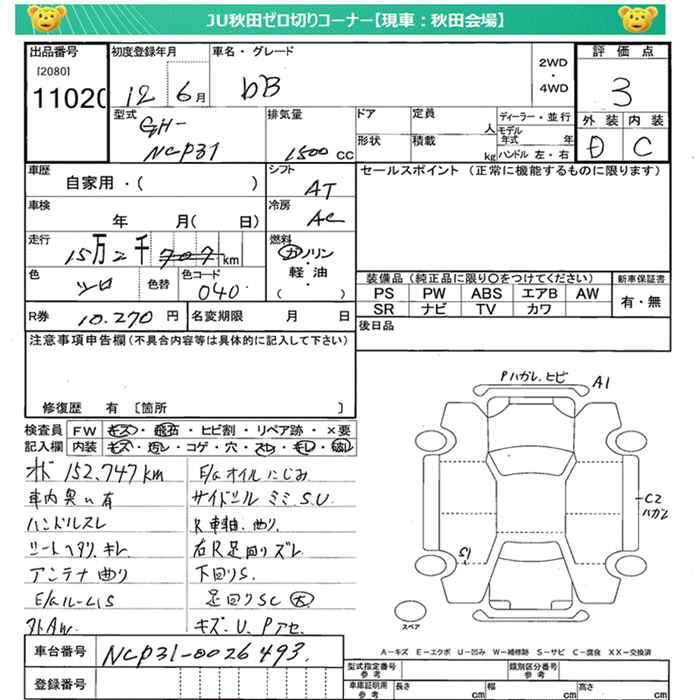 JU秋田ゼロ切りコーナー【現車：秋田会場】
出品番号 初度登録年月 車名・グレード 評価点
[2080]
11020 12 6月 bB 2WD・4WD 3
外装 内装
D C
型式 GH-NCP31 排気量 1500 CC ドア 定員 人 ディーラー・並行
形状 積載 kg モデル年式 年 ハンドル 左・右
車歴 自家用・( ) シフト AT
セールスポイント (正常に機能するものに限ります)
車検 年 月( 日) 冷房 AC
走行 15万2千 km 燃料 ガソリン
軽油・( )
色 シロ 色替 色コード 040
装備品(純正品に限り○をつけてください) 新車保証書
PS PW ABS エアB AW 有・無
SR ナビ TV カワ
R券 10.270 円 名変期限 月 日
後日品
注意事項申告欄(不具合内容等は具体的に記入して下さい)
修復歴 有 〔箇所 〕
検査員 FW キズ・飛石・ヒビ割・リペア跡・×要
記入欄 内装 キズ・汚レ・コゲ・穴・スレ・キレ・破レ
152,747km E/Gオイルにじみ
車内臭い有 サイドシル ミミ S.U
ハンドルスレ R車軸.曲り.
シートヘタリ.キレ 右R足回りズレ
アンテナ曲り 下回りS.
E/Gルーム.S 足回りSC 大
社外AW. キズ.U.Pアセ.
PハガレヒビA1
C2
ハガレ
S1
スペア
A－キズ E－エクボ U－凹み W－補修跡 S－サビ C－腐食 XX－交換済
車台番号 NCP31-0026493.
登録番号
型式指定番号 参考 類別区分番号 参考
車庫証明用 参考 長さ cm 幅 cm 高さ cm